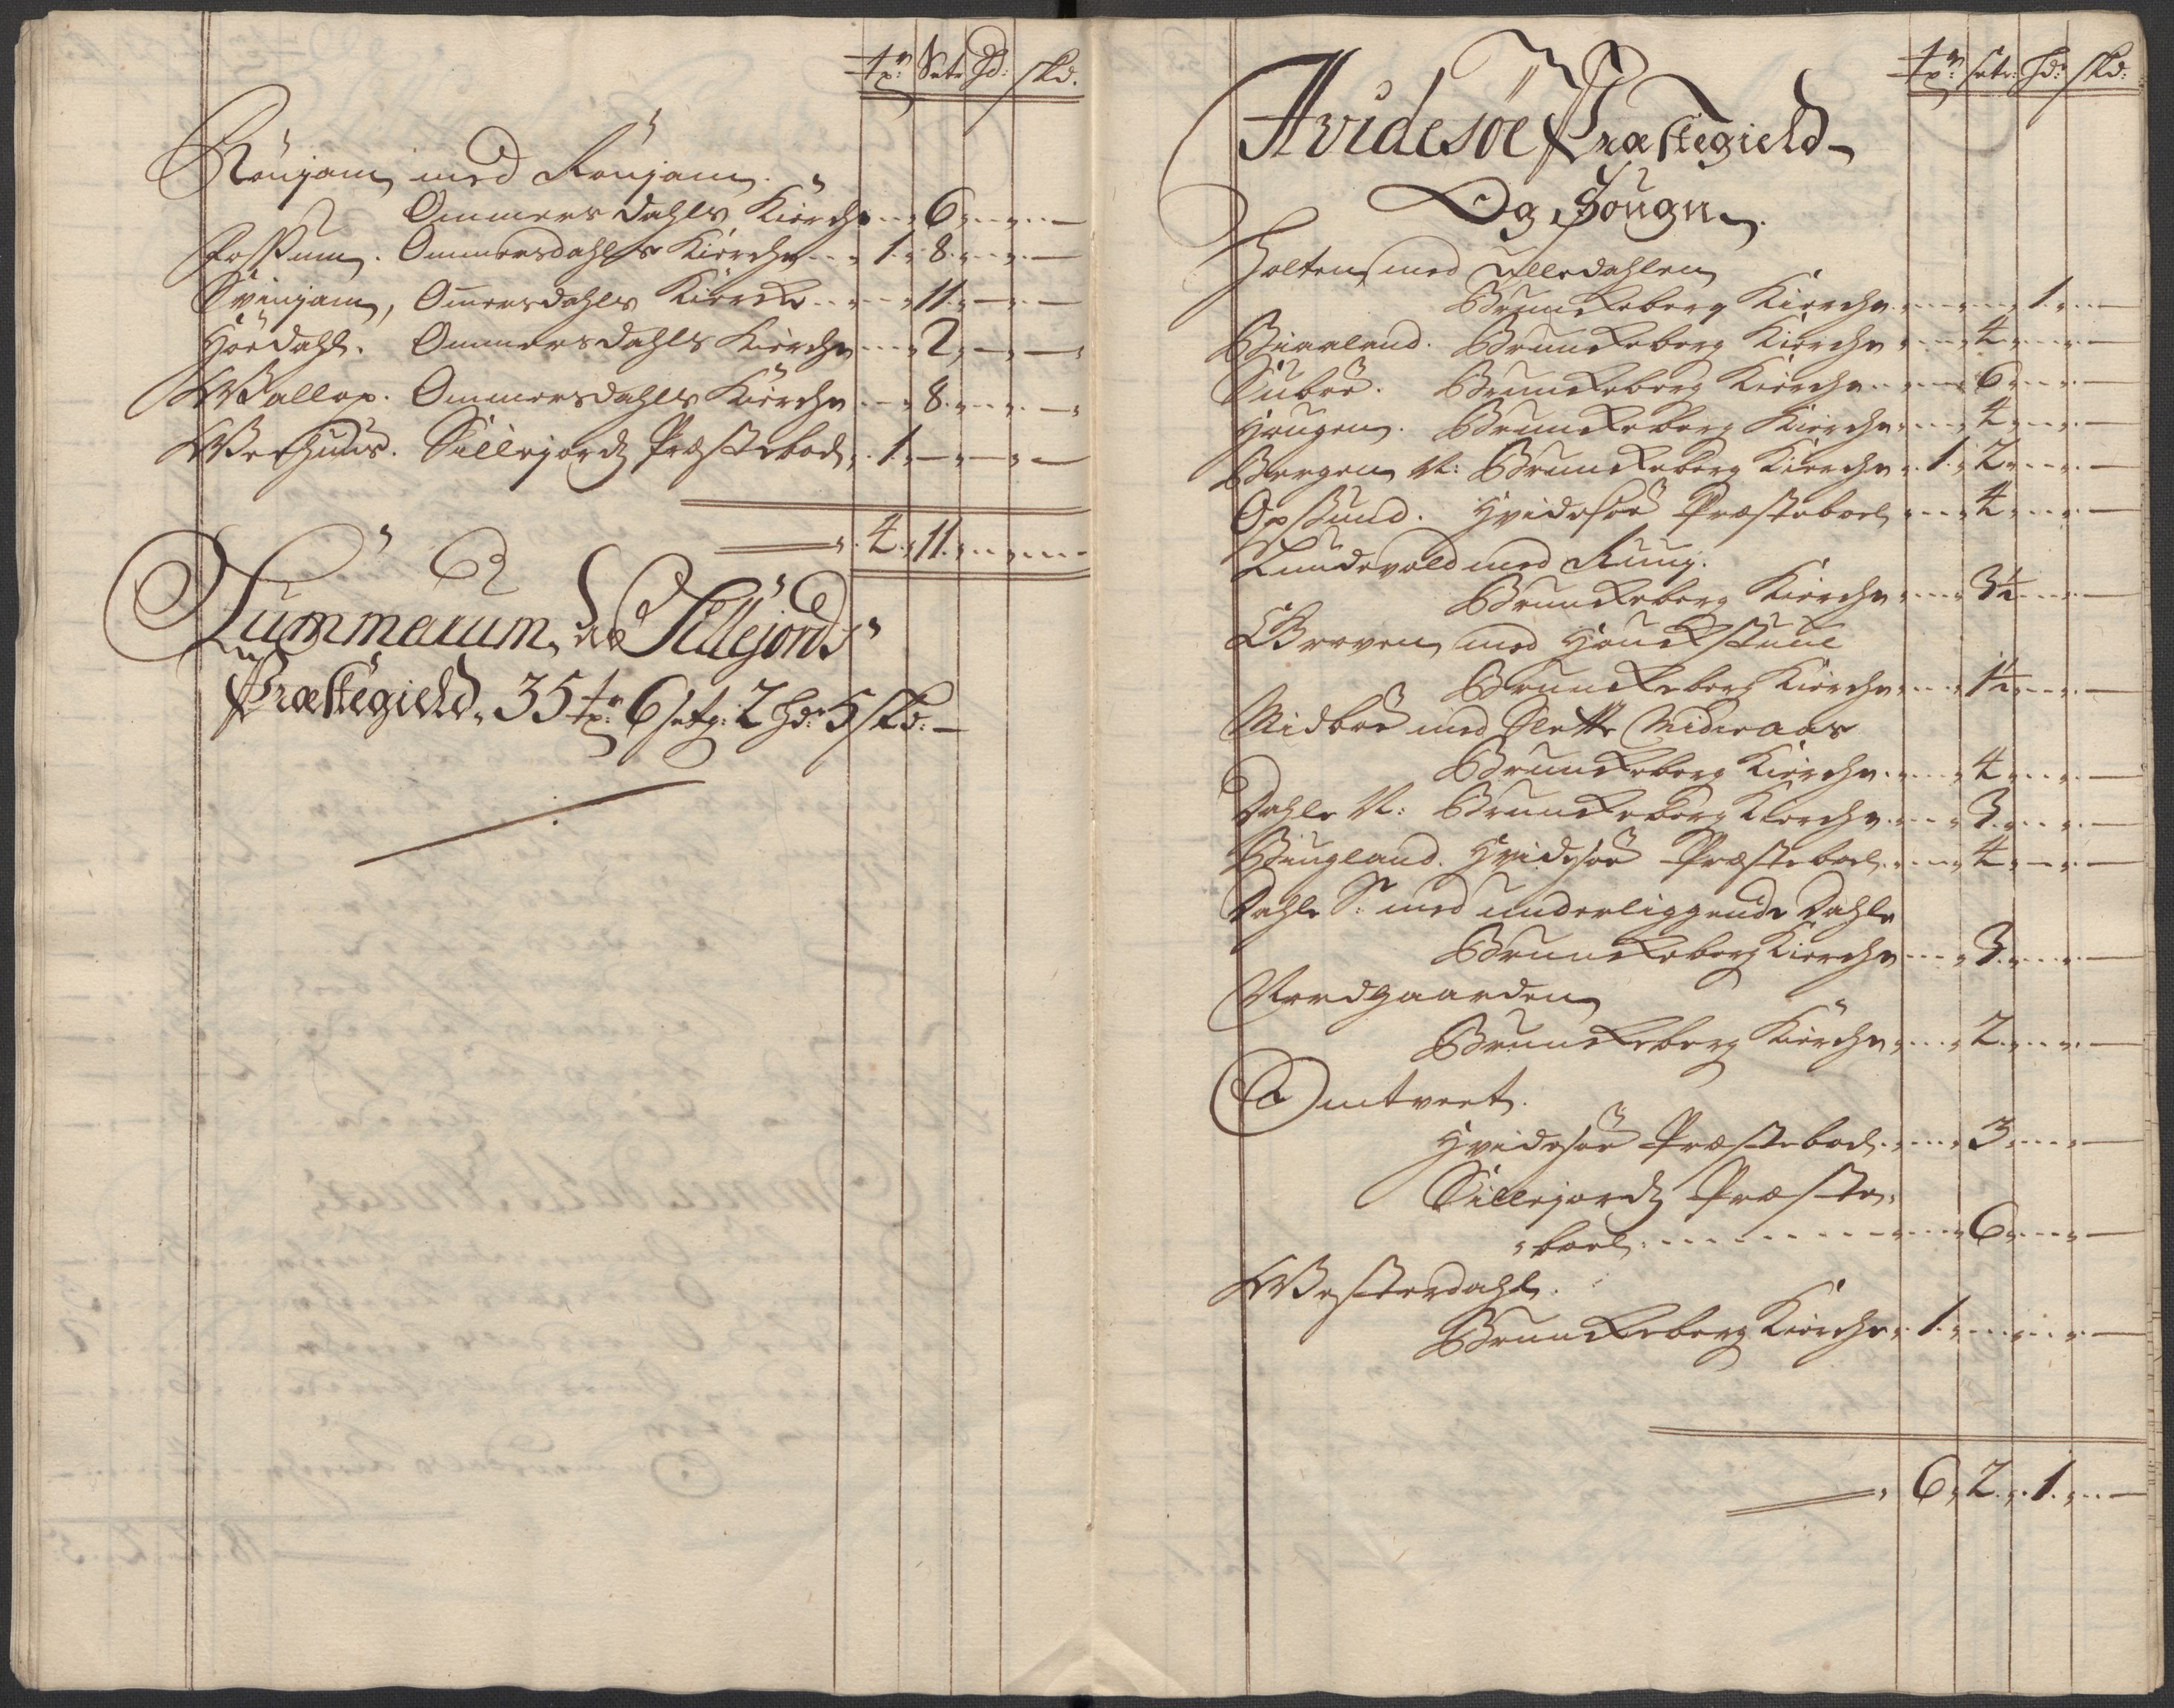 tpr: Setr hd: skd.
Rönjam med Rönjam.
Ommersdahls Kirche 6
Fossum. Ommersdahls Kirche 1 8
Svinjam, Omersdahls Kircke 11
Höedahl. Ommersdahls Kirche 2
Wallop. Ommersdahls Kirche 8
Weehuus. Sillejordz Præstebod 1
4 11
Summarum, de Sillejords
Præstegield, 35 tpr: 6 setg: 2 hdr 5 skd:
tpr: setr: hdr skd:
Hvidesöe Præstegield
Og Sougn.
Holten med
Brunckeberg Kirche 1
Biaaland. Brunckeberg Kirche 4
Suböe. Brunckeberg Kirche 6
Hougen. Brunckeberg Kirche 4
Bergen N: Brunckeberg Kirche 1 2
Opsund. Hvidesöe Præstebol 4
Lundevold med Ruui.
Brunckeberg Kirche 3½
Groven med
Brunckeberg Kirche 1½
Midböe med Slette Midieaas
Brunckeberg Kirche 4
Dahle N: Brunckeberg Kirche 3
Biugland. Hvidesöe Præstebol 4
Dahle S: med underliggende Dahle
Brunckeberg Kirche 3
Nordgaarden
Brunckeberg Kirche 2
Omtveet.
Hvidesöe Præstebod 3
Sillejordz Præste-
boel 6
Westerdahl.
Brunckeberg Kirche 1
6 2 1